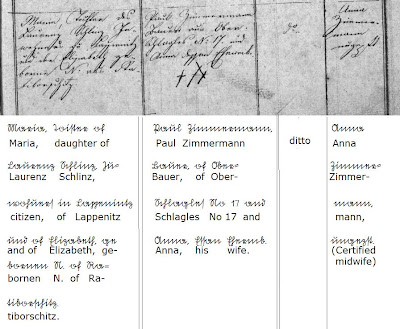 Maria, Tochter des
Laurenz Schlinz In-
wohners in Lappenitz
und der Elisabeth ge
borne N. aus Ra
tiborschitz
Paul Zimmermann
Bauer aus Ober-
Schlagles N. 17 und
Anna dessen Eheweib.
+++
do
Anna
Zimmer-
mann
Maria, of
Maria, daughter of
Laurenz Schlinz,
Laurenz Schlinz,
in Lappenitz
citizen, of Lappenitz
und of Elizabeth, ge
and of Elizabeth, ge-
bornen N. of Ra-
bornen N. of Ra-
tiborschitz.
tiborschitz.
Paul Zimmermann,
Paul Zimmermann
Bauer, of Ober-
Bauer, of Ober-
Schlagles No 17 and
Schlagles No 17 and
Anna,
Anna, his wife.
ditto
Anna
Anna
Zimmer-
Zimmer-
mann,
mann,
(Certified
midwife)